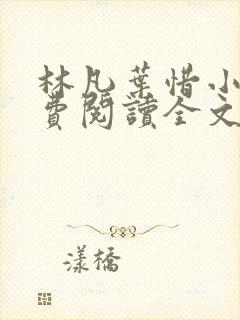 林凡葉惜小
費閱讀全文
漾橋